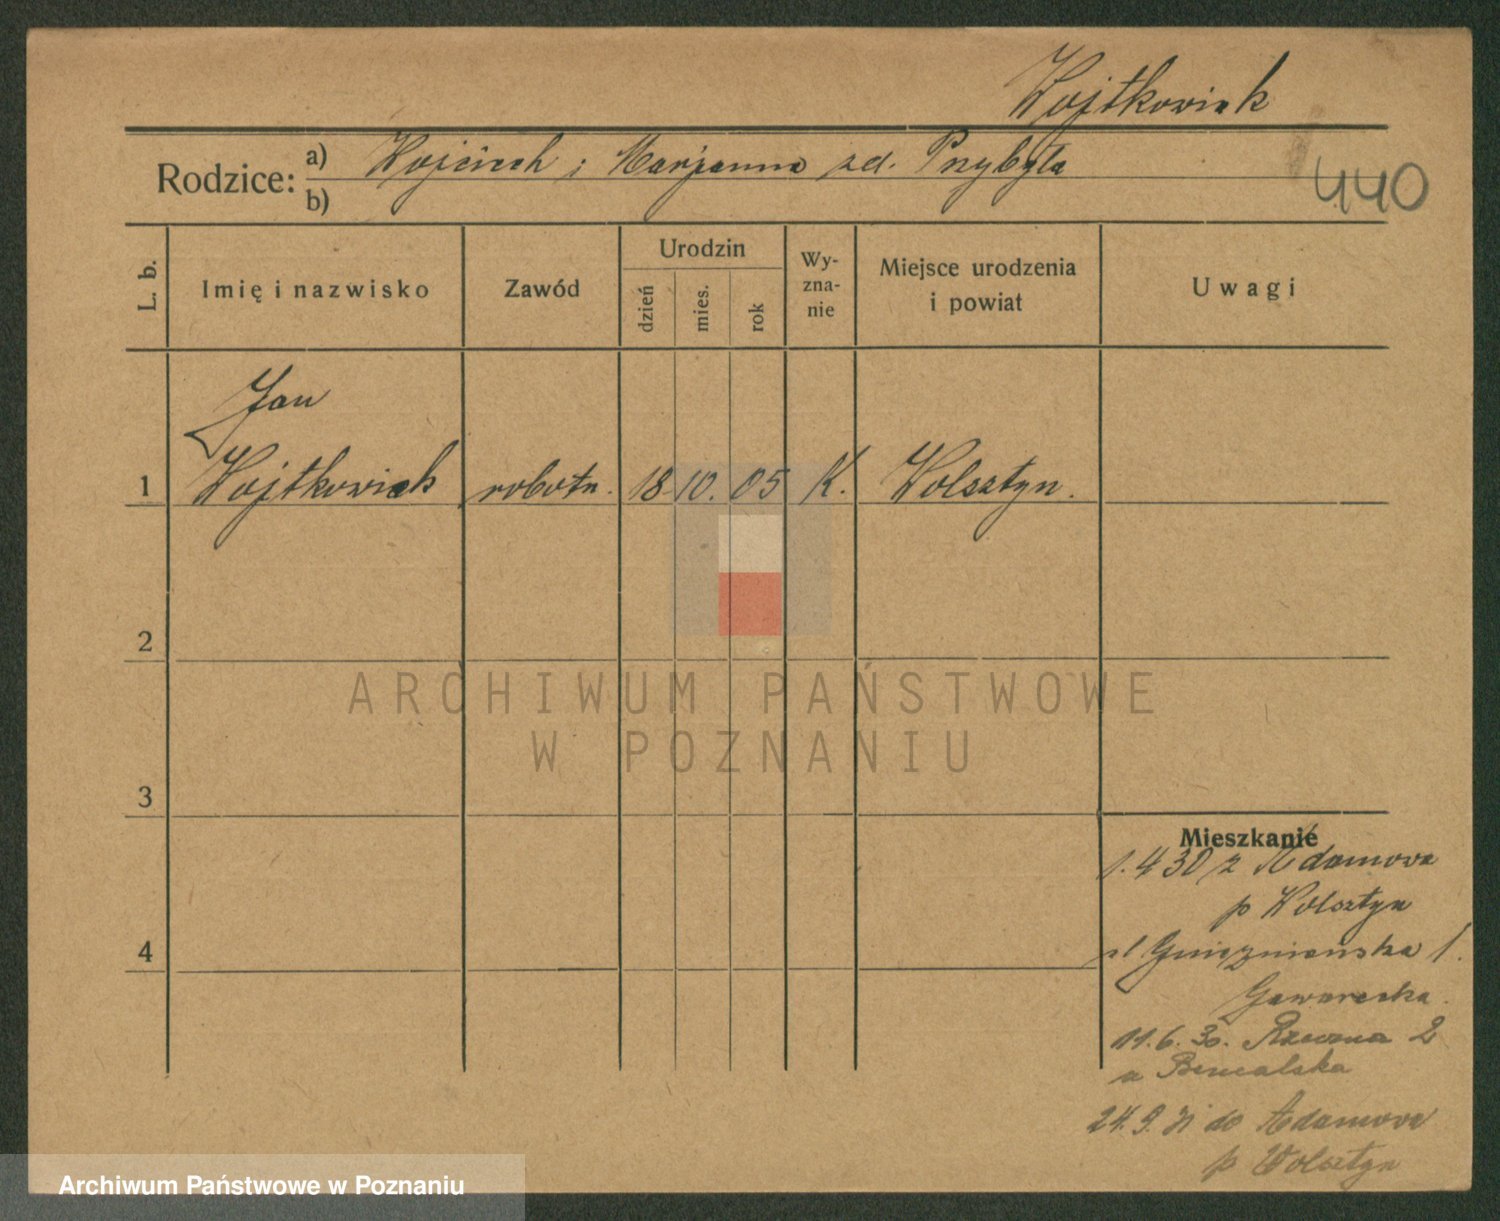 Wojtkowiak
Rodzice: a) Wojciech i Marjanna zd. Przybyła
b)
440
L. b.
Imię i nazwisko
Zawód
Urodzin
dzień
mies.
rok
Wy-
zna-
nie
Miejsce urodzenia
i powiat
Uwagi
Jan
1 Wojtkowiak robotn. 18. 10. 05 K. Wolsztyn.
2
3
4
Mieszkanie
1.4 30 z Adamowa
p Wolsztyn
ul Gnieznieńska 1.
11.6.30. Rzeczna 2
24.9. 31 do Adamowa
p Wolsztyn
ARCHIWUM PAŃSTWOWE
W POZNANIU
Archiwum Państwowe w Poznaniu